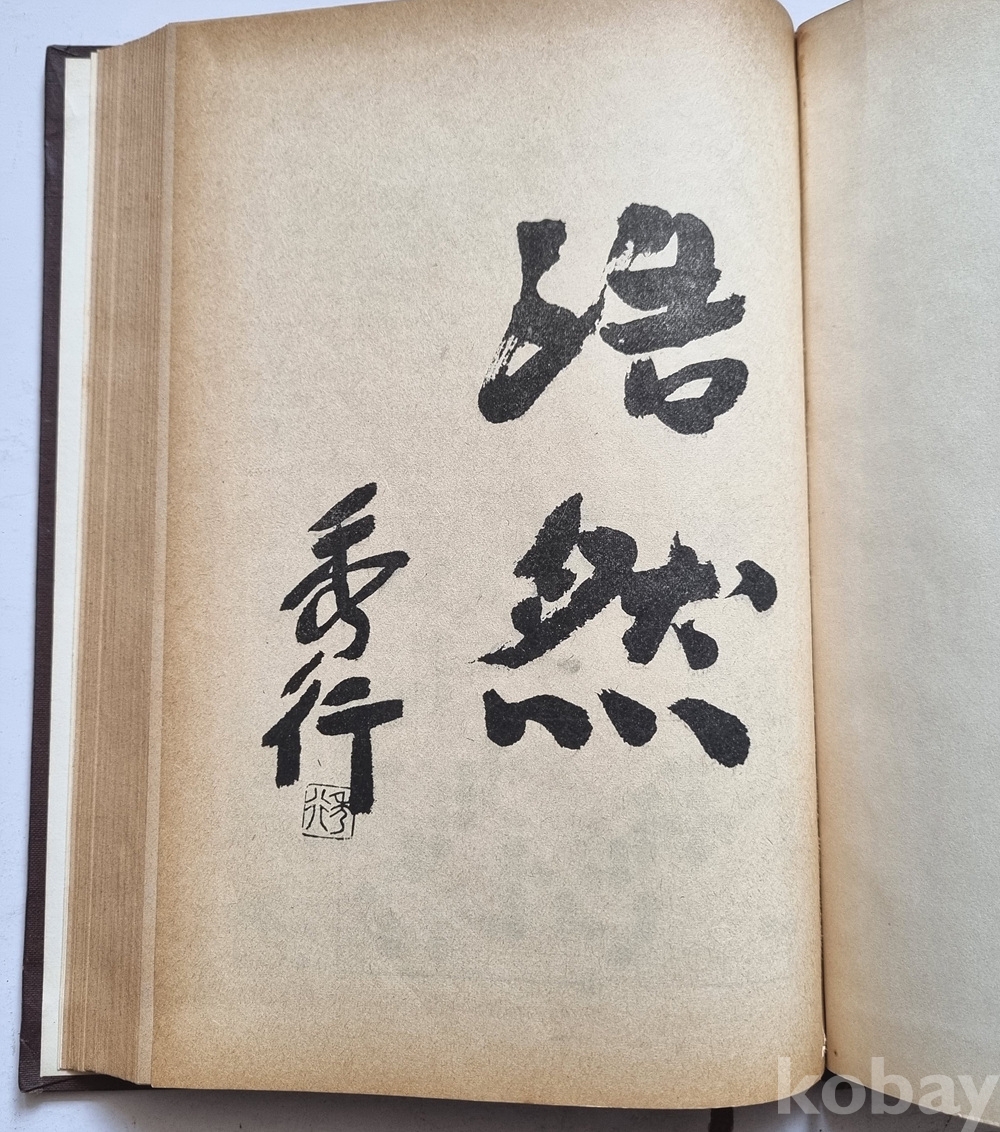 浩然
秀行
秀行
kobay